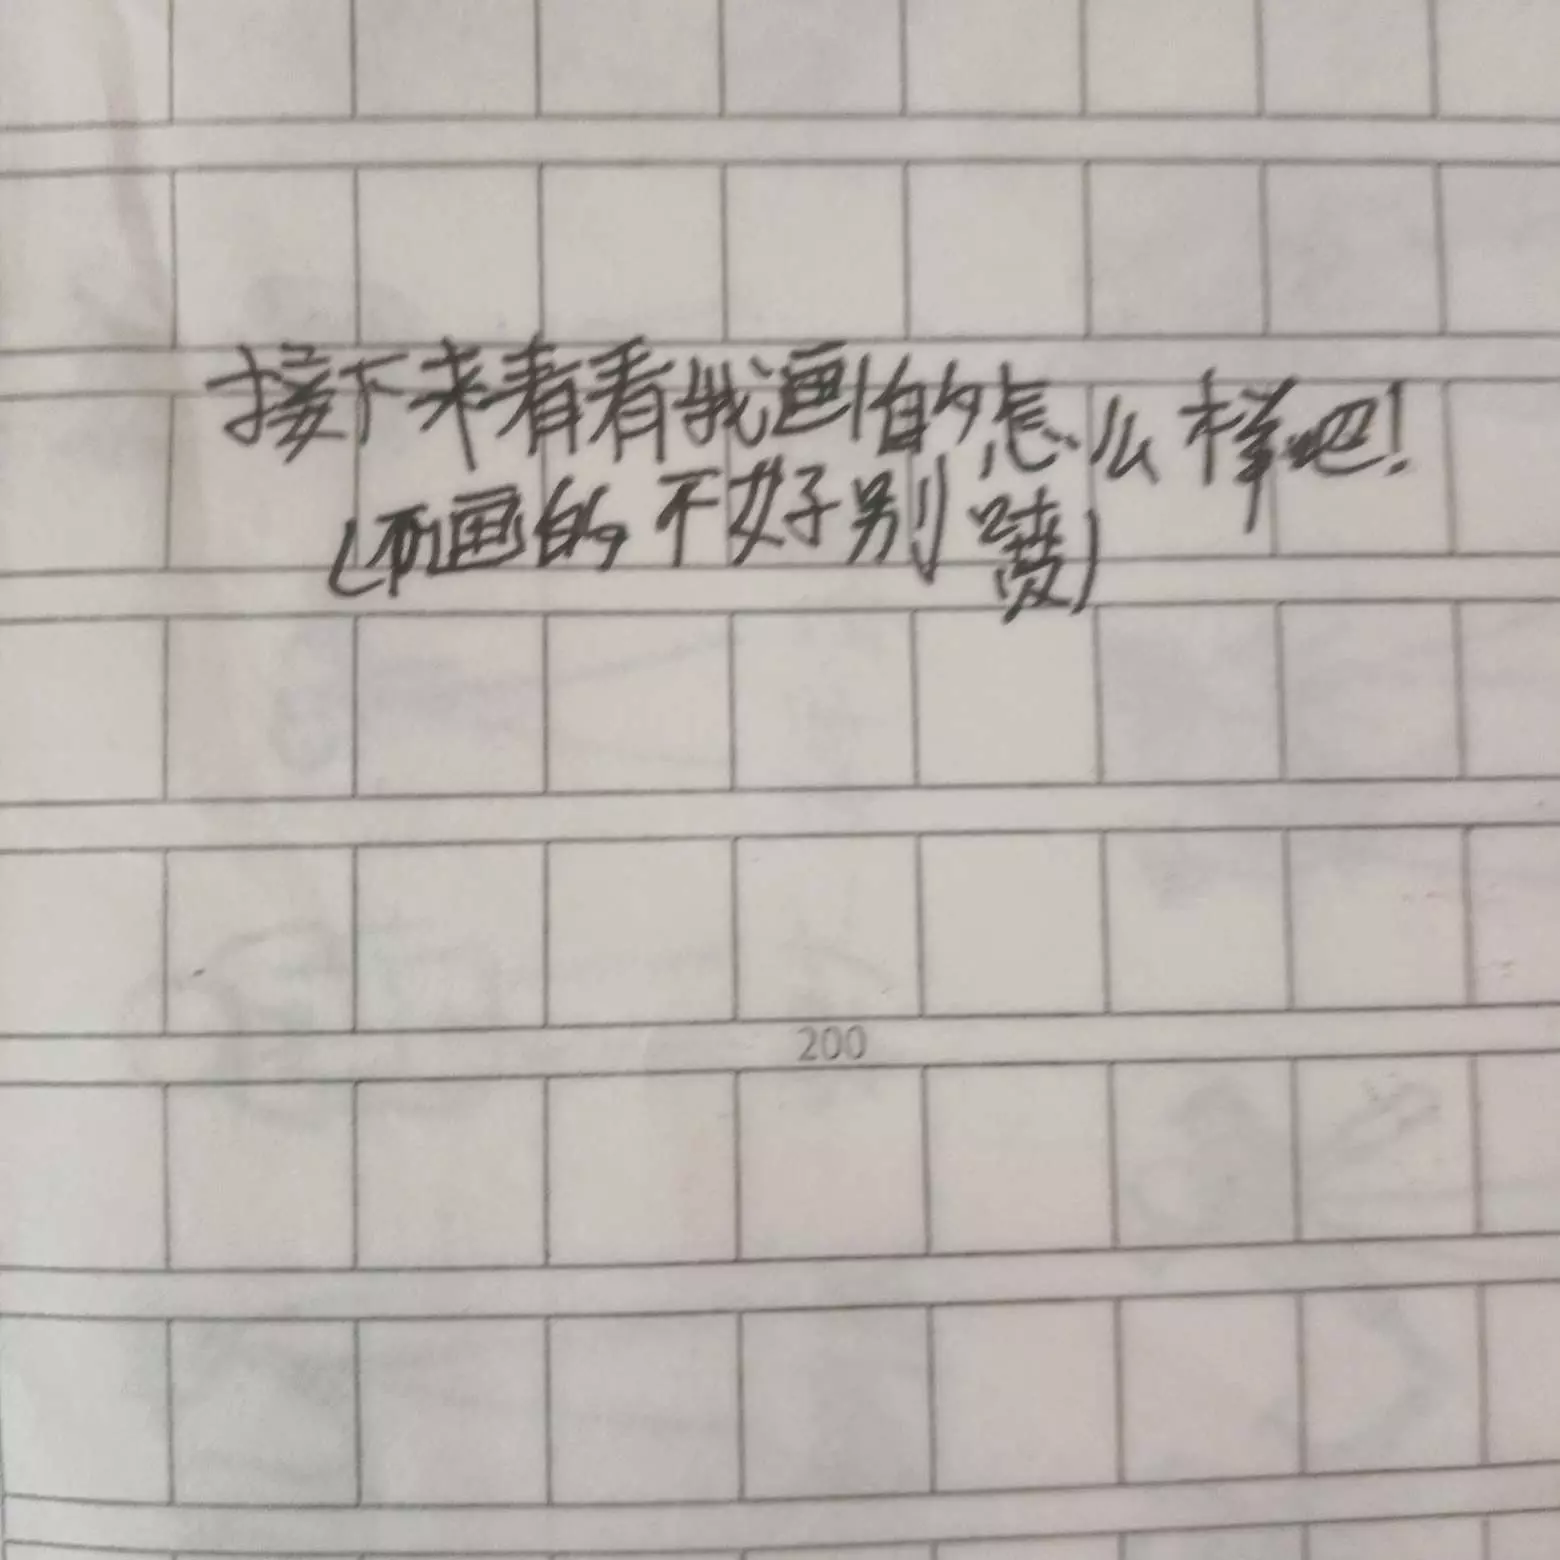 接下来看看我画的怎么样吧!
(画的不好别喷)
200